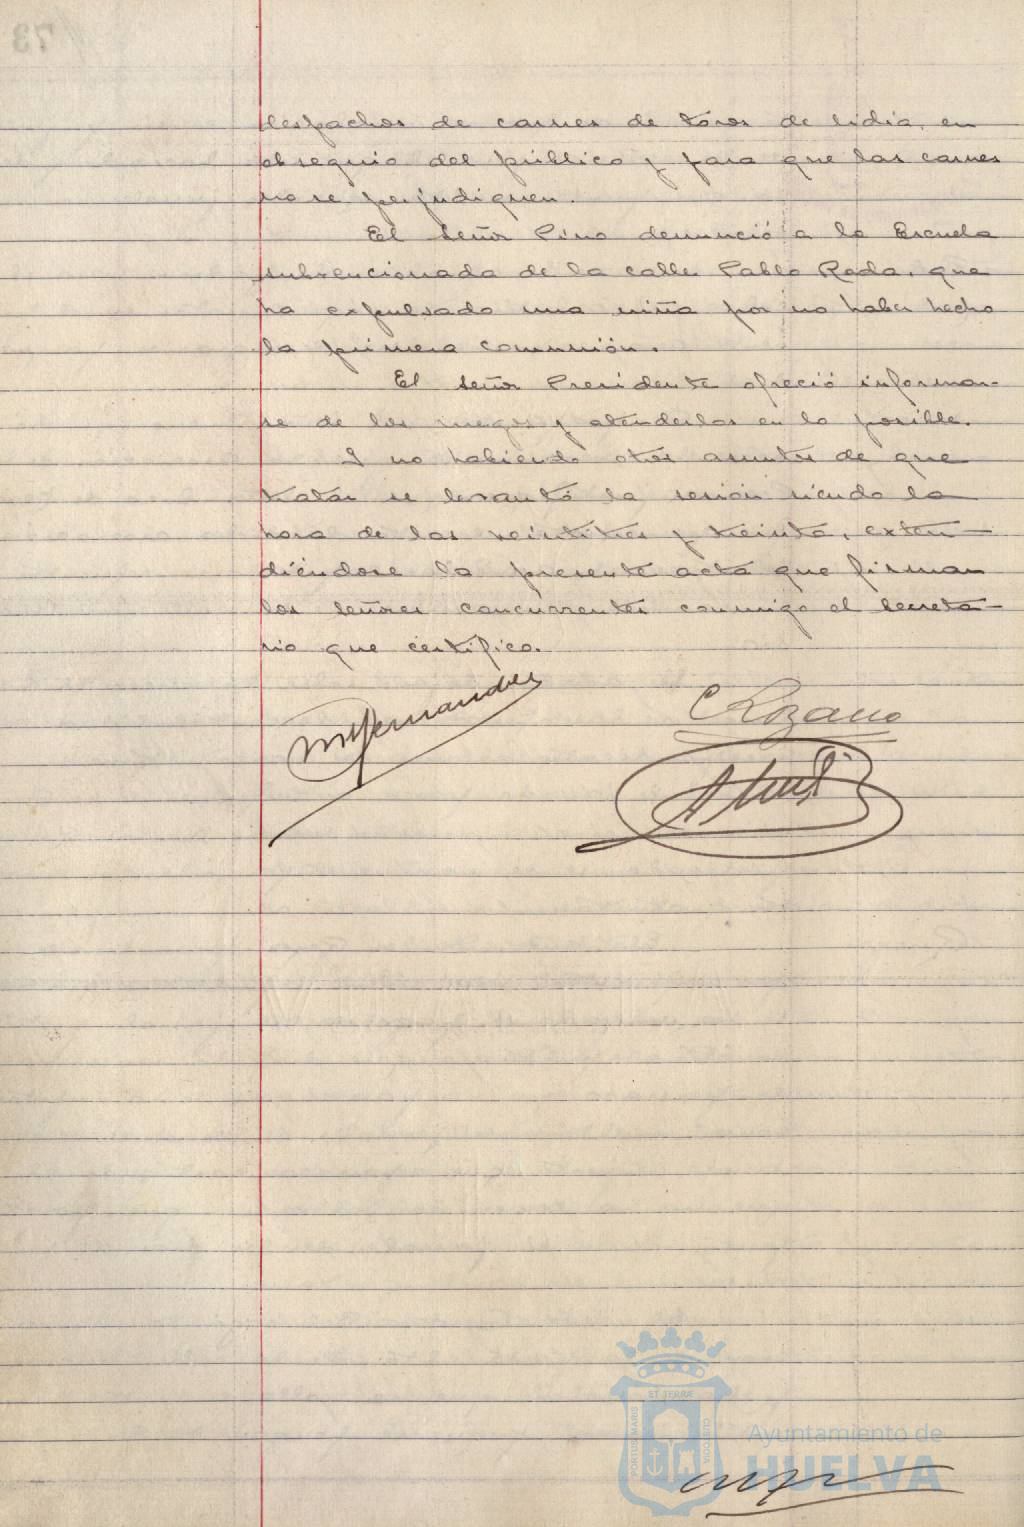 despachos de carnes de toros de lidia, en
obsequio del público y para que las carnes
no se perjudiquen.
El Señor Pino denunció a la Escuela
subvencionada de la calle Pablo Rada, que
ha expulsado una niña por no haber hecho
la primera comunión.
El Señor Presidente ofreció informar-
se de los ruegos y atenderlos en lo posible.
I no habiendo otros asuntos de que
tratar se levantó la sesión siendo la
hora de las veintitres y treinta, exten-
diéndose la presente acta que firman
los señores concurrentes conmigo el Secreta-
rio que certifico.
M Hernandez
C Lozano
ET TERRÆ
PORTUS MARIS
CUSTODIA
Ayuntamiento de
HUELVA